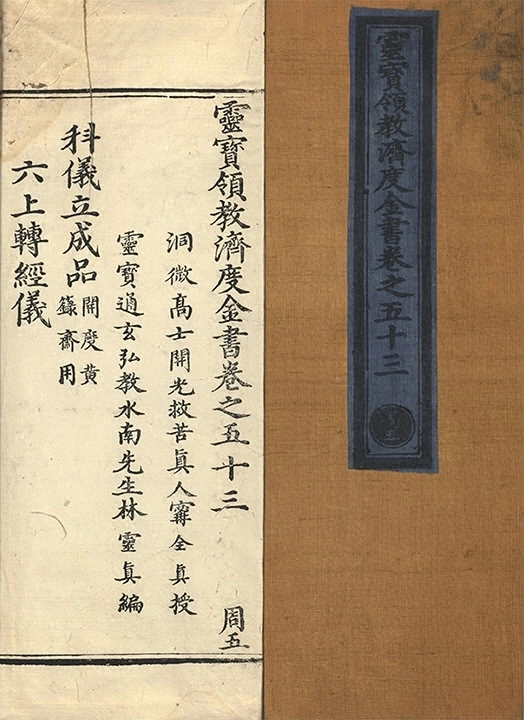 靈寶領教濟度金書卷之五十三
周五
靈寶領教濟度金書卷之五十三 周五
洞微髙士開光救苦眞人甯全眞授
靈寶通玄弘教水南先生林靈眞編
科儀立成品 開度黄籙齋用
六上轉經儀